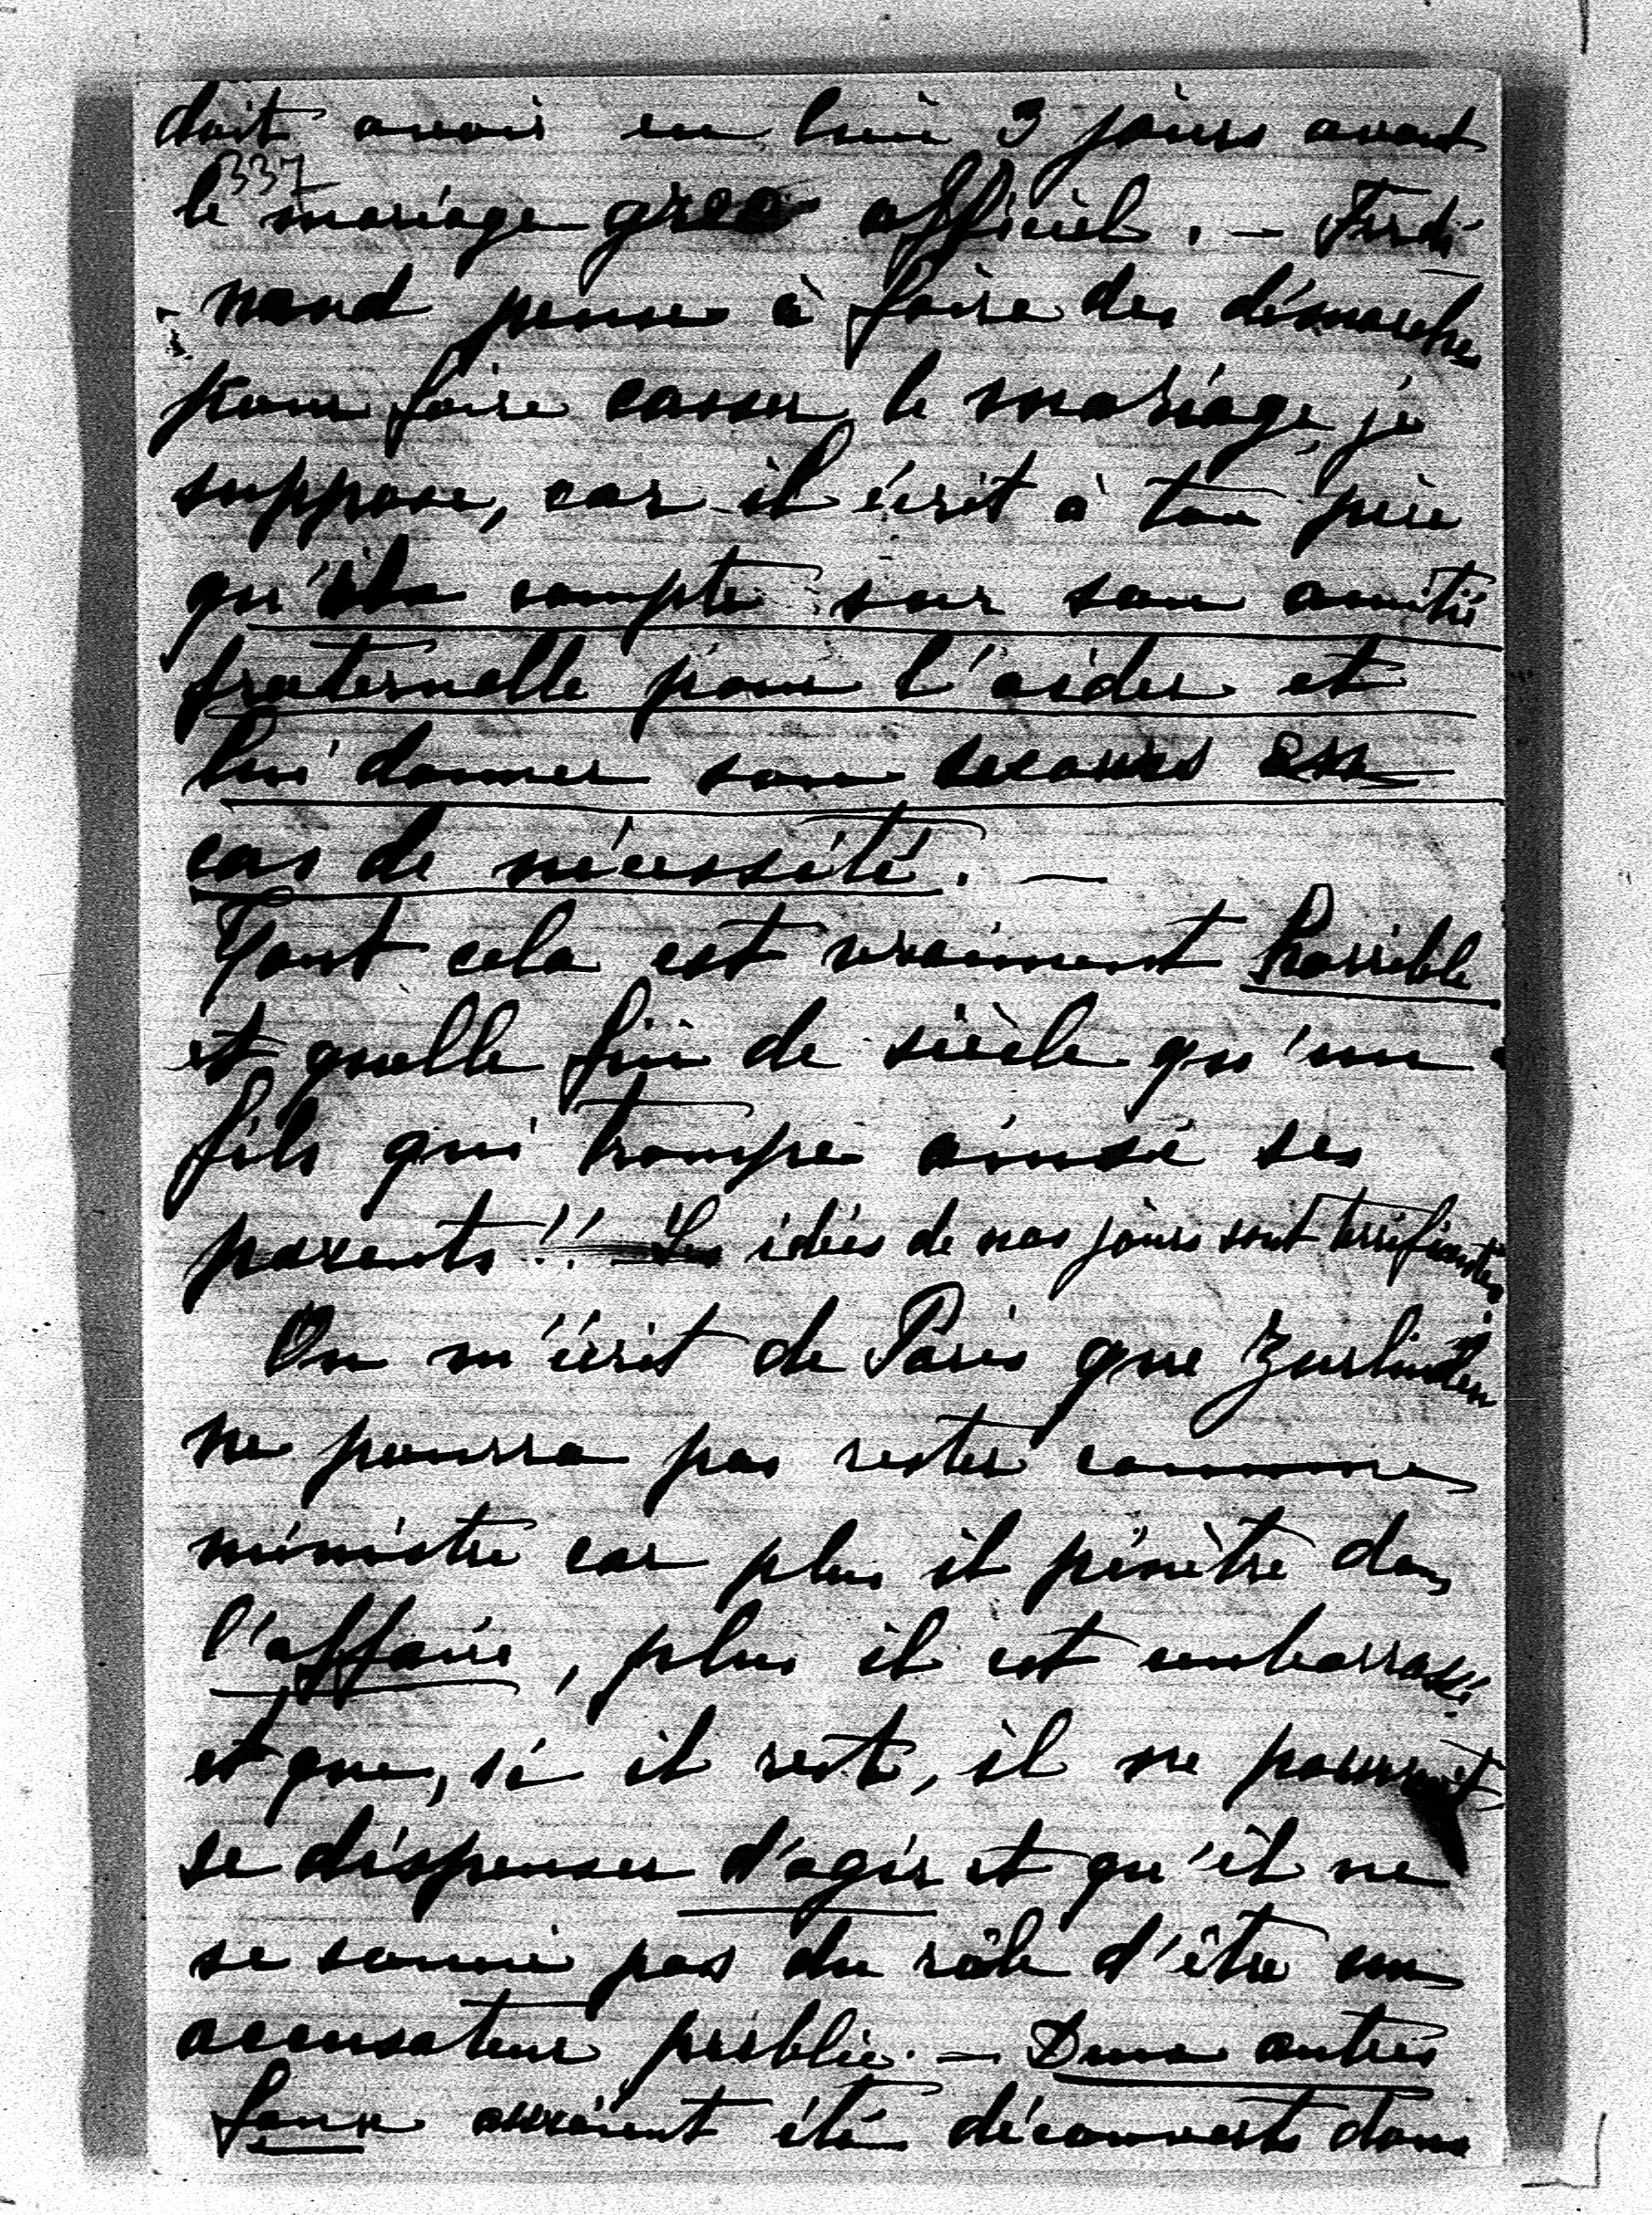 doit avoir eu lieu 3 jours avant
337
le mariage grec officiel. — Ferdi-
nand pense à faire des démarches
pour faire casser le mariage, je
suppose, car il écrit à ton père
qu'il compte sur son amitié
fraternelle pour l'aider et
lui donner son secours en
cas de nécessité. —
Tout cela est vraiment horrible
et quelle fin de siècle qu'un
fils qui trompe ainsi ses
parents!! Les idées de nos jours sont terrifiantes
On m'écrit de Paris que Zurlinden
ne pourra pas rester comme
ministre car plus il pénètre dans
l'affaire, plus il est embarrassé
et que, si il reste, il ne pourrait
se dispenser d'agir et qu'il ne
se soucie pas du rôle d'être un
accusateur public. — Deux autres
faux auraient été découverts dans